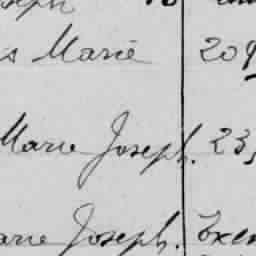 s Marie 209
Marie Joseph. 23,
arie Joseph. Exem